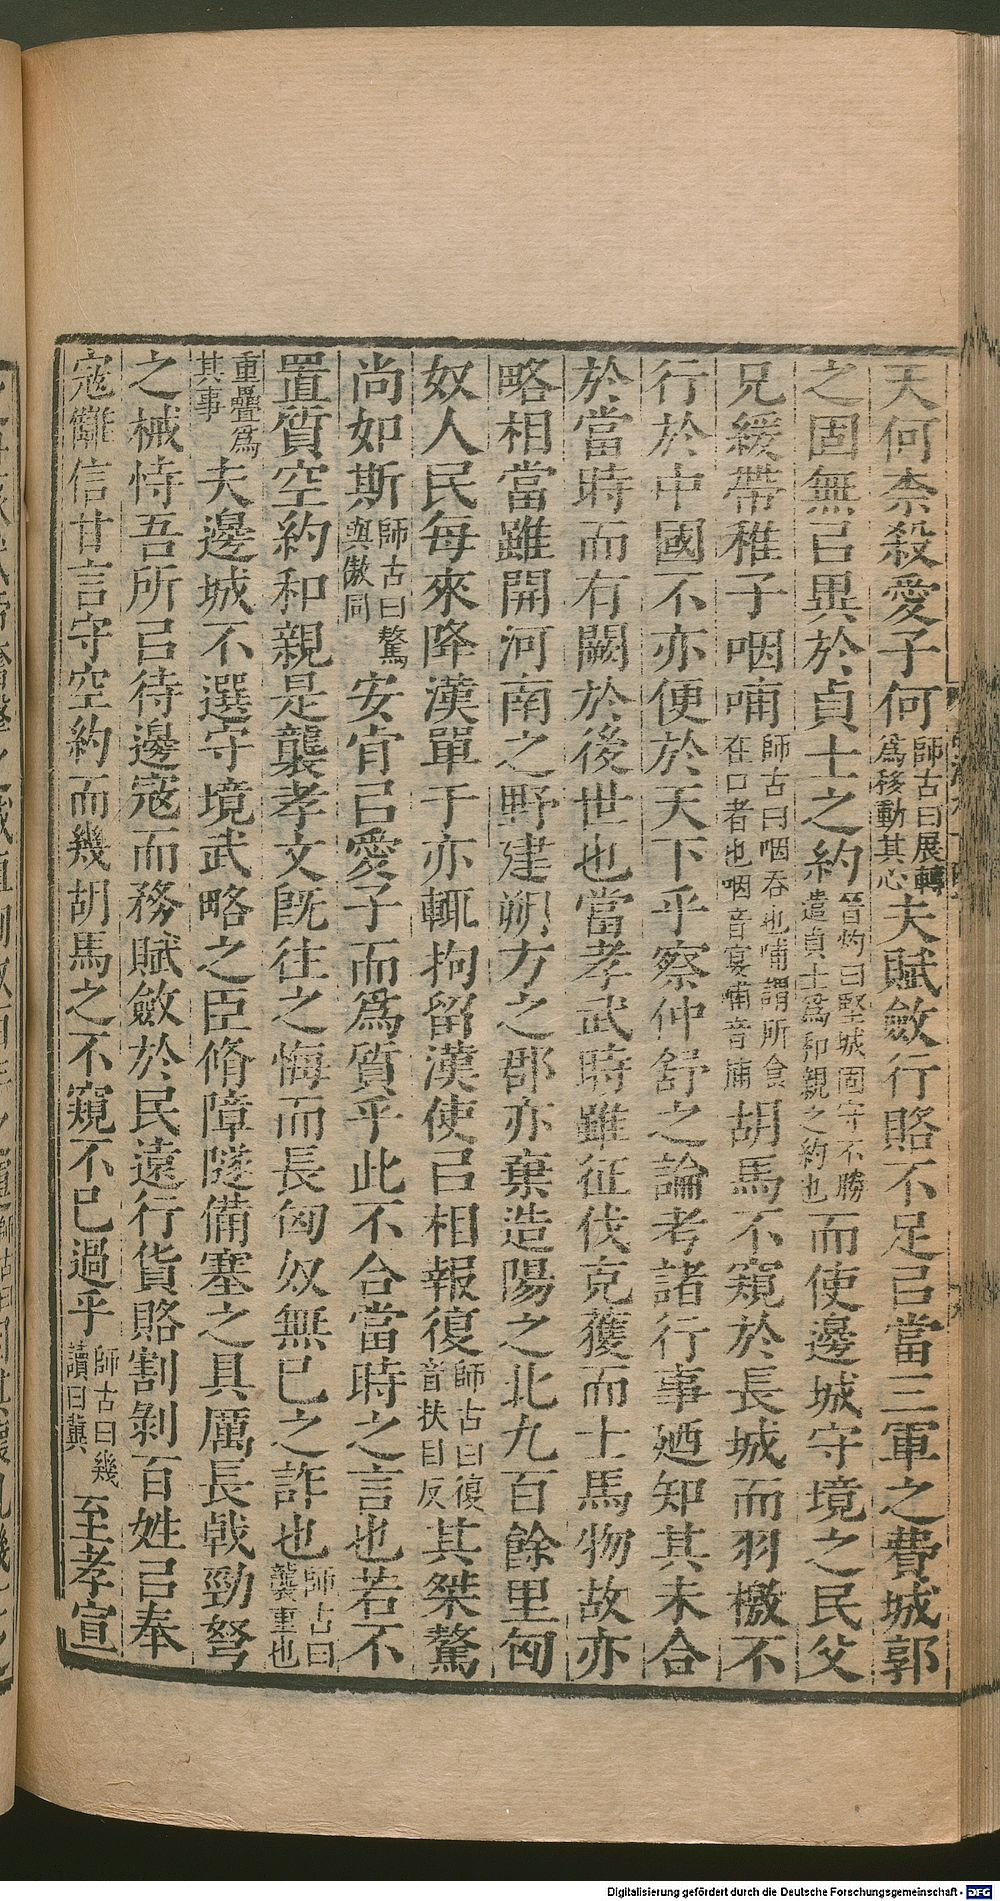 天何柰殺愛子何師古曰展轉爲移動其心夫賦斂行賂不足㠯當三軍之費城郭
之固無㠯異於貞士之約晉灼曰堅城固守不勝遣貞士爲和親之約也而使邊城守境之民父
兄緩帶稚子咽哺師古曰咽吞也哺謂所食在口者也咽音宴哺音捕胡馬不窺於長城而羽檄不
行於中國不亦便於天下乎察仲舒之論考諸行事廼知其未合
於當時而有闕於後世也當孝武時雖征伐克獲而士馬物故亦
略相當雖開河南之野建朔方之郡亦棄造陽之北九百餘里匈
奴人民每來降漢單于亦輒拘留漢使㠯相報復師古曰復音扶目反其桀驁
尚如斯師古曰驁與傲同安肯㠯愛子而爲質乎此不合當時之言也若不
置質空約和親是襲孝文旣往之悔而長匈奴無已之詐也師古曰襲重也
重疊爲其事夫邊城不選守境武略之臣脩障隧備塞之具厲長戟勁弩
之械恃吾所㠯待邊寇而務賦斂於民遠行貨賂割剝百姓㠯奉
寇讎信甘言守空約而幾胡馬之不窺不已過乎師古曰幾讀曰冀至孝宣
Digitalisierung gefördert durch die Deutsche Forschungsgemeinschaft - DFG